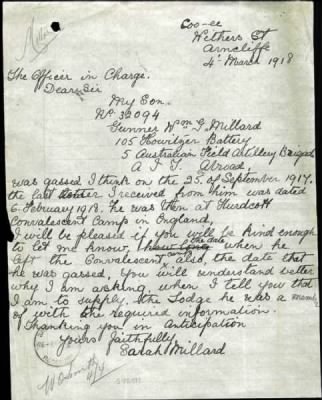 Millard
Coo-ee
Withers St
Arncliffe
4th March 1918
The Officer in Charge.
Dear Sir
My Son.
No 32094
Gunner Wm G. Millard
105 Howitzer Battery
5 Australian Field Artillery Brigade
A I F. Abroad,
was gassed I think on the 25. of September 1917.
the last letter I received from him was dated
6 February 1918. He was then at Hurdcott
Convalescent Camp in England,
I will be pleased if you will be kind enough
to let me know, the date when he
left the Convalescent, camp also, the date that
he was gassed, you will understand better
why I am asking, when I tell you that
I am to supply, the Lodge he was a member
of with the required information.
Thanking you in Anticipation
Yours faithfully
Sarah Millard